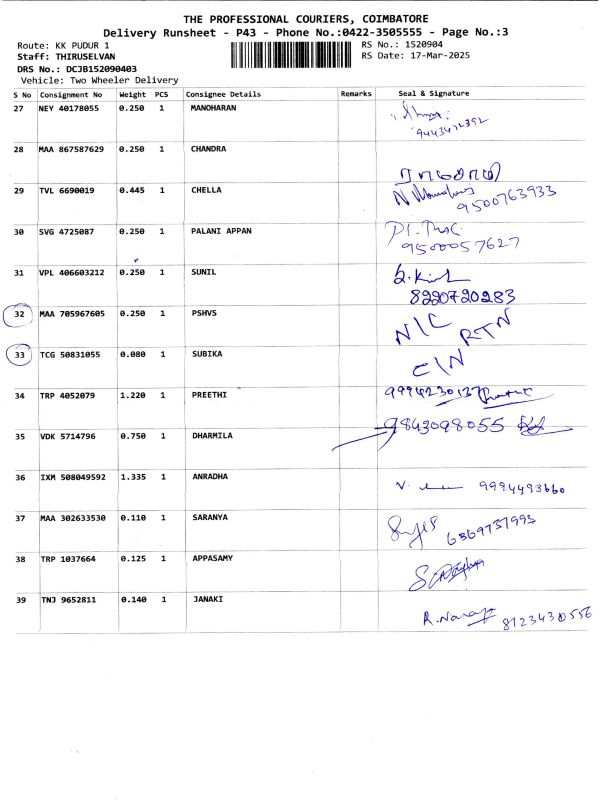 THE PROFESSIONAL COURIERS, COIMBATORE
Delivery Runsheet - P43 - Phone No.:0422-3505555 - Page No.:3
Route: KK PUDUR 1 RS No.: 1520904
Staff: THIRUSELVAN RS Date: 17-Mar-2025
DRS No.: DCJB152090403
Vehicle: Two Wheeler Delivery
S No Consignment No Weight PCS Consignee Details Remarks Seal & Signature
27 NEY 40178055 0.250 1 MANOHARAN
28 MAA 867587629 0.250 1 CHANDRA
29 TVL 6690019 0.445 1 CHELLA 9500763933
30 SVG 4725087 0.250 1 PALANI APPAN
9500057627
31 VPL 406603212 0.250 1 SUNIL
8220720283
32 MAA 705967605 0.250 1 PSHVS N/C RTN
33 TCG 50831055 0.080 1 SUBIKA C/N
34 TRP 4052079 1.220 1 PREETHI 9994230137
35 VDK 5714796 0.750 1 DHARMILA 9843098055
36 IXM 508049592 1.335 1 ANRADHA 9994493660
37 MAA 302633530 0.110 1 SARANYA 6369737993
38 TRP 1037664 0.125 1 APPASAMY
39 TNJ 9652811 0.140 1 JANAKI 8123430556